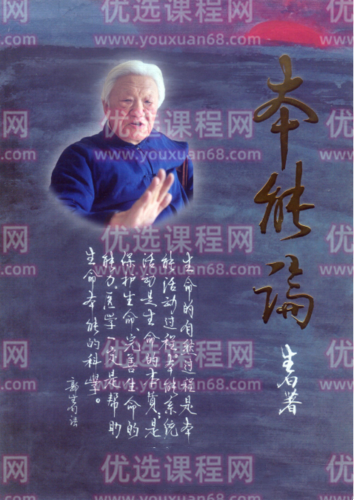 本能論
生白著
生命的自然过程是本
能活动过程。本能系统
活动是生命的本質；是
保护生命、完善生命的
能力。医学只是帮助
生命本能的科學。
优选课程网
www.youxuan68.com